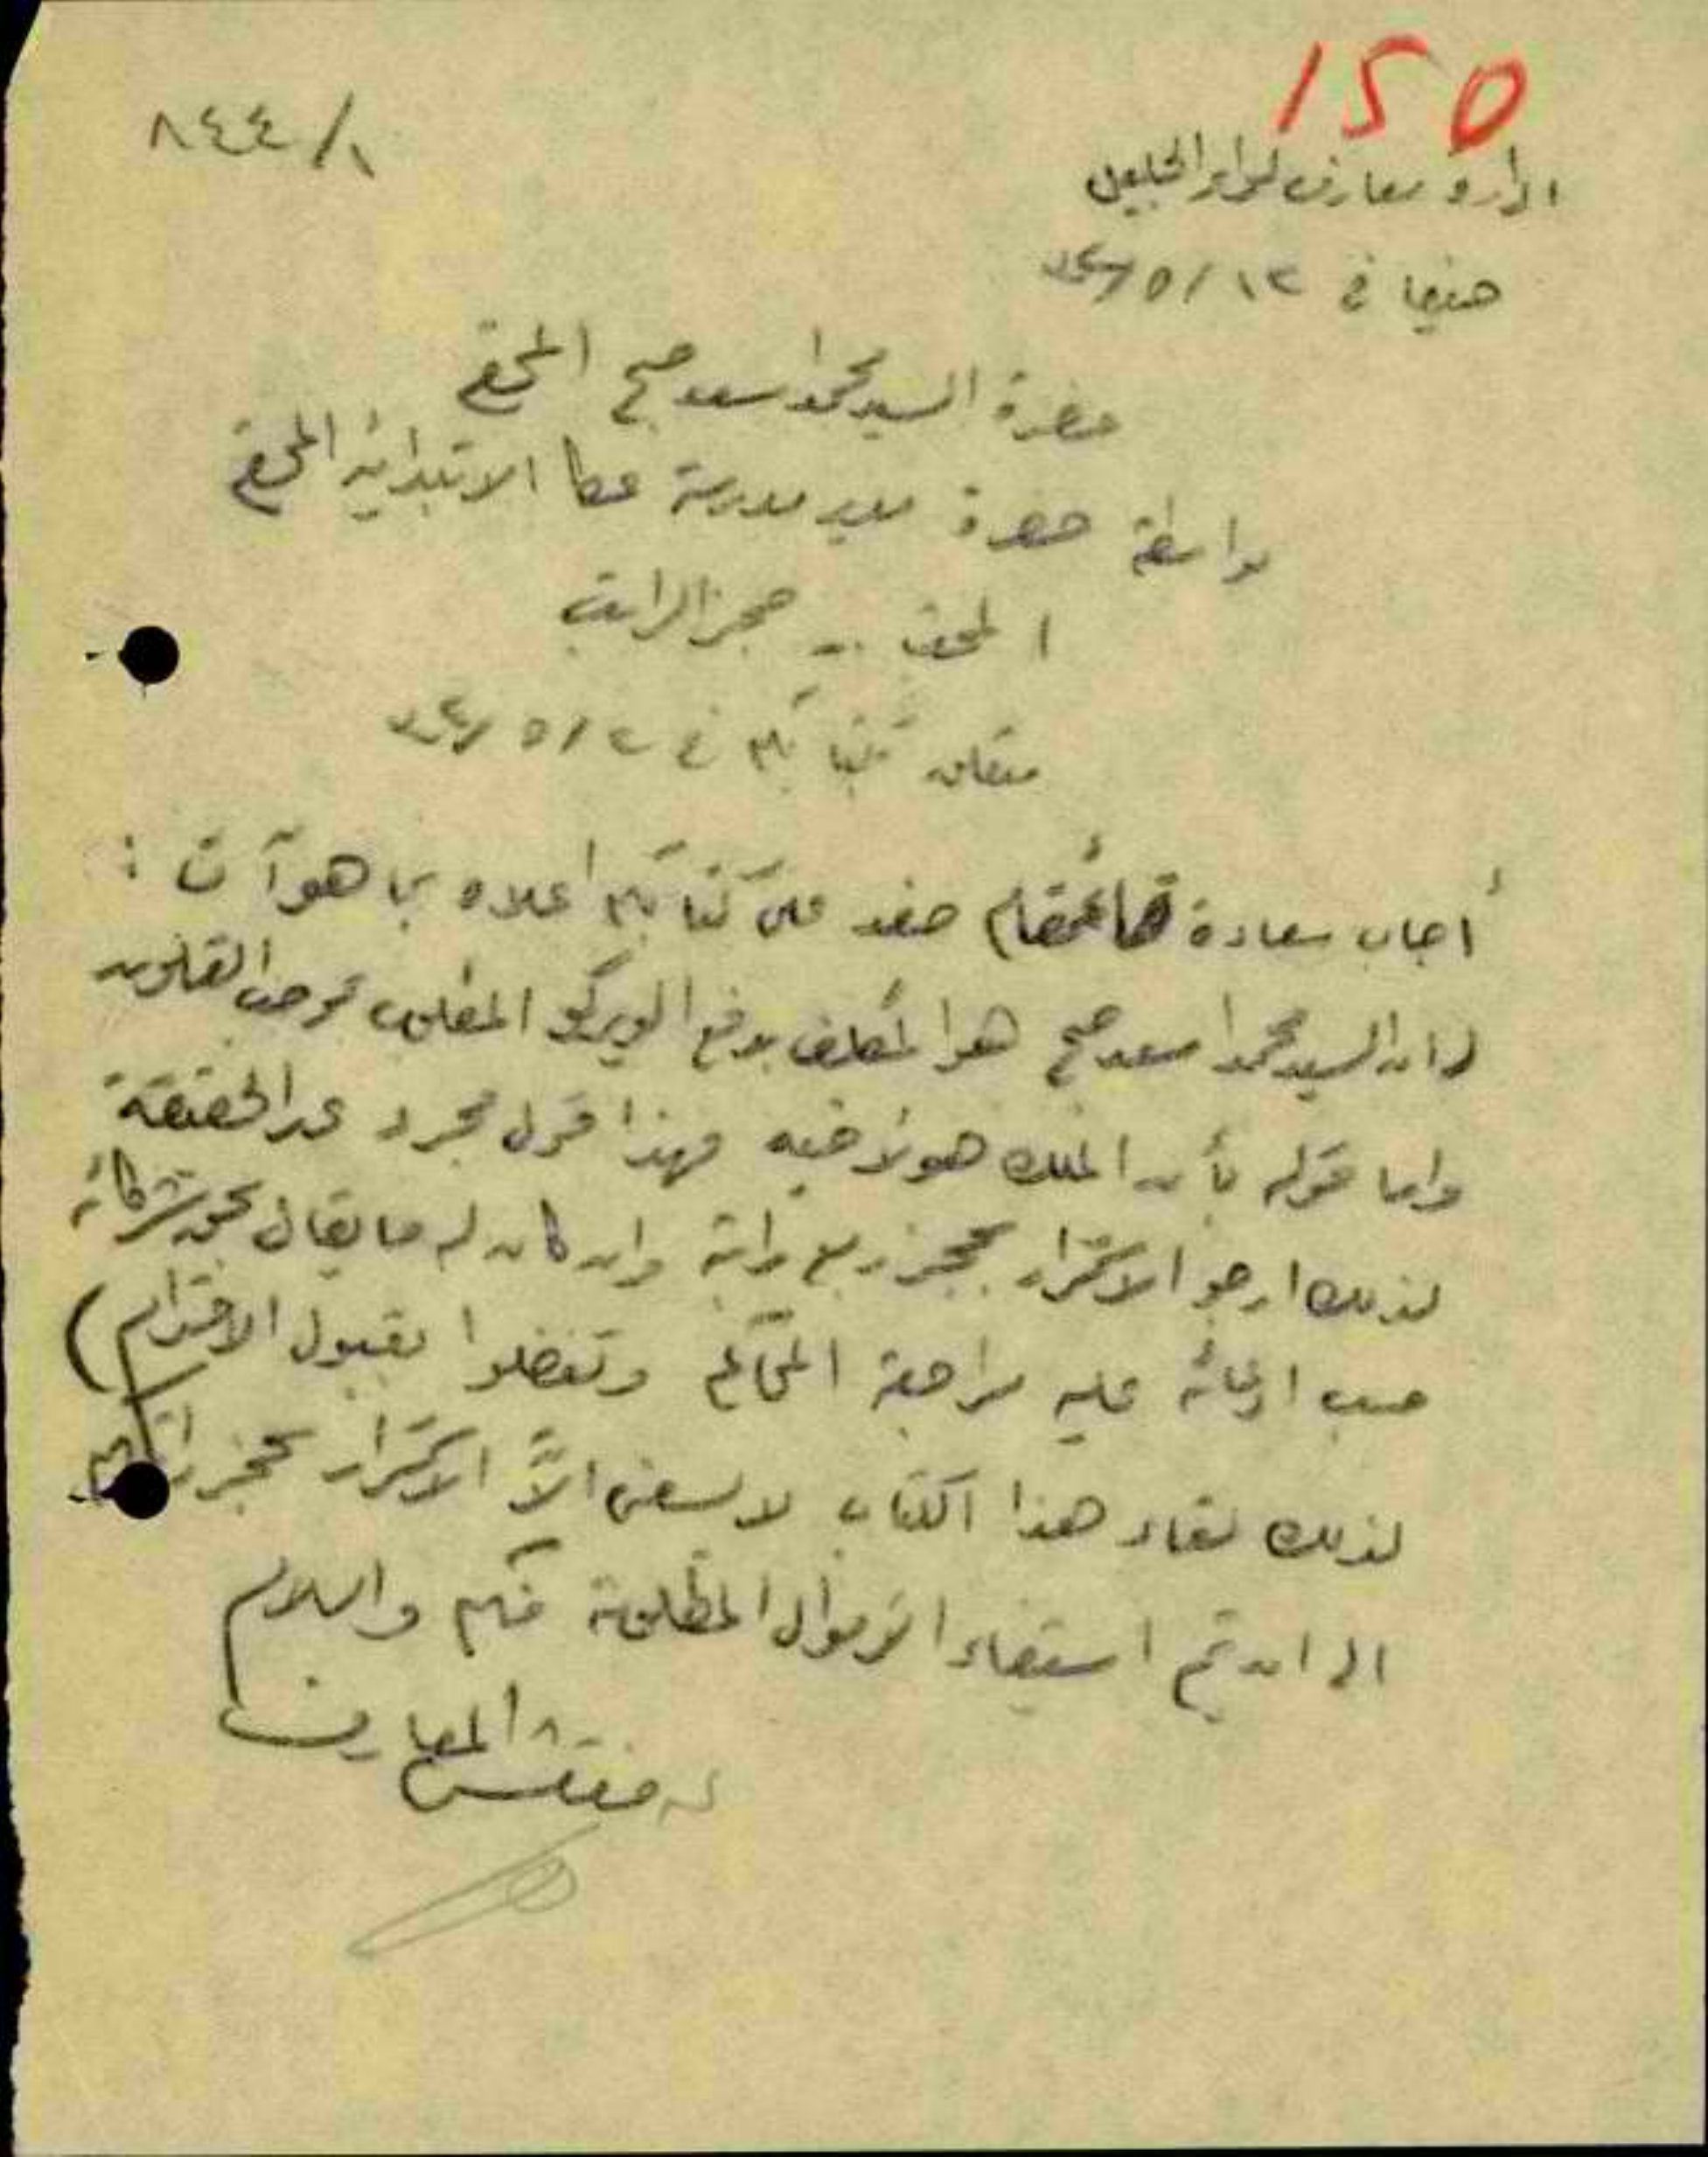 150
٨٤٤/١
ادارة معارف لواء الجليل
حيفا في ١٢/٥/
حضرة السيد محمد اسعد صبح المحترم
بواسطة حضرة مدير مدرسة عكا الابتدائية المحترم
حجز الراتب
كتابكم في ٢/٥/
أجاب سعادة قائمقام صفد على كتابكم اعلاه بما هو آت :
ان السيد محمد اسعد صبح هو المكلف بدفع الويركو المطلوب بموجب القانون
واما قوله بأن الملك هو لأخيه فهذا قول مجرد عن الحقيقة
لذلك ارجو الاستمرار بحجز ربع راتبه وان كان له ما يقال بحق شركائه
حسب ادعائه عليه مراجعة المحاكم وتفضلوا بقبول الاحترام)
لذلك لقاء هذا الكتاب لا يسعني الاّ الاستمرار بحجز راتبكم
الى ان يتم استيفاء الاموال المطلوبة منكم والسلام
مفتش المعارف